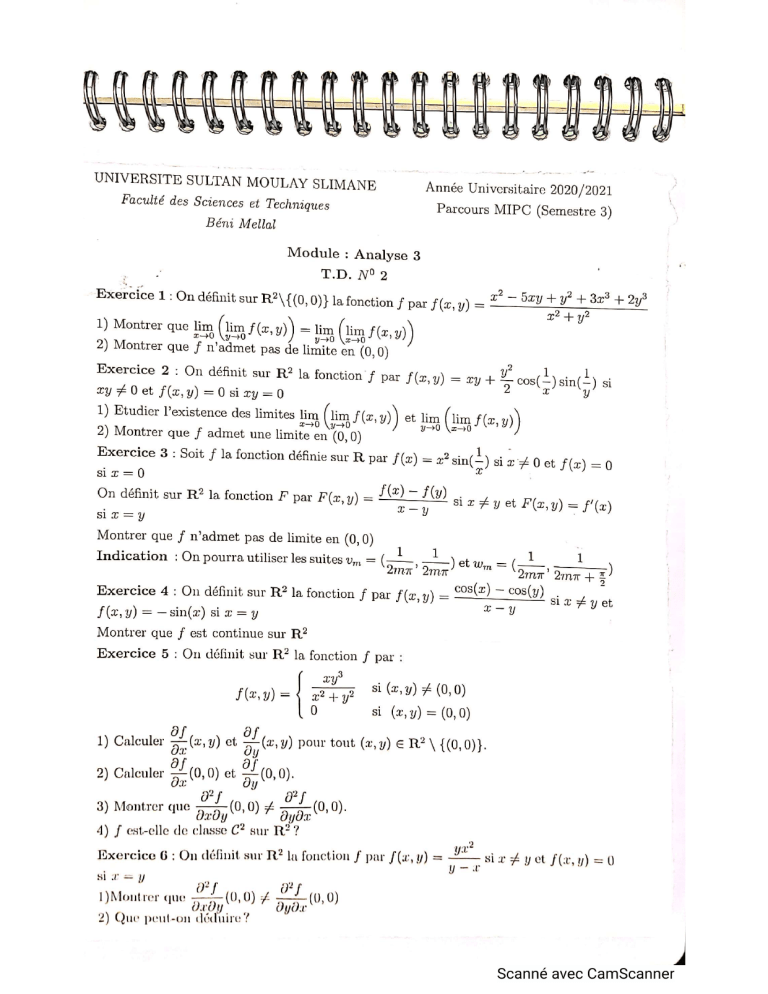 UNIVERSITE SULTAN MOULAY SLIMANE
Faculté des Sciences et Techniques
Béni Mellal
Année Universitaire 2020/2021
Parcours MIPC (Semestre 3)
Module : Analyse 3
T.D. N⁰ 2
Exercice 1 : On définit sur R²\{(0, 0)} la fonction f par f(x, y) = (x² − 5xy + y² + 3x³ + 2y³)/(x² + y²)
1) Montrer que lim_{x→0} (lim_{y→0} f(x, y)) = lim_{y→0} (lim_{x→0} f(x, y))
2) Montrer que f n'admet pas de limite en (0, 0)
Exercice 2 : On définit sur R² la fonction f par f(x, y) = xy + y²/2 cos(1/x) sin(1/y) si
xy ≠ 0 et f(x, y) = 0 si xy = 0
1) Etudier l'existence des limites lim_{x→0} (lim_{y→0} f(x, y)) et lim_{y→0} (lim_{x→0} f(x, y))
2) Montrer que f admet une limite en (0, 0)
Exercice 3 : Soit f la fonction définie sur R par f(x) = x² sin(1/x) si x ≠ 0 et f(x) = 0
si x = 0
On définit sur R² la fonction F par F(x, y) = (f(x) − f(y))/(x − y) si x ≠ y et F(x, y) = f′(x)
si x = y
Montrer que f n'admet pas de limite en (0, 0)
Indication : On pourra utiliser les suites v_m = (1/(2mπ), 1/(2mπ)) et w_m = (1/(2mπ), 1/(2mπ + π/2))
Exercice 4 : On définit sur R² la fonction f par f(x, y) = (cos(x) − cos(y))/(x − y) si x ≠ y et
f(x, y) = − sin(x) si x = y
Montrer que f est continue sur R²
Exercice 5 : On définit sur R² la fonction f par :
f(x, y) = { xy³/(x² + y²) si (x, y) ≠ (0, 0)
0 si (x, y) = (0, 0)
1) Calculer ∂f/∂x (x, y) et ∂f/∂y (x, y) pour tout (x, y) ∈ R² \ {(0, 0)}.
2) Calculer ∂f/∂x (0, 0) et ∂f/∂y (0, 0).
3) Montrer que ∂²f/∂x∂y (0, 0) ≠ ∂²f/∂y∂x (0, 0).
4) f est-elle de classe C² sur R² ?
Exercice 6 : On définit sur R² la fonction f par f(x, y) = yx²/(y − x) si x ≠ y et f(x, y) = 0
si x = y
1)Montrer que ∂²f/∂x∂y (0, 0) ≠ ∂²f/∂y∂x (0, 0)
2) Que peut-on déduire ?
Scanné avec CamScanner